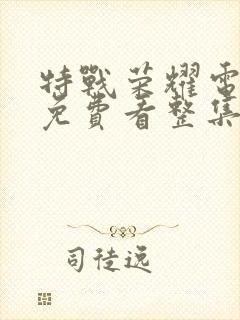 特戰榮耀電
免費看整集
司徒远